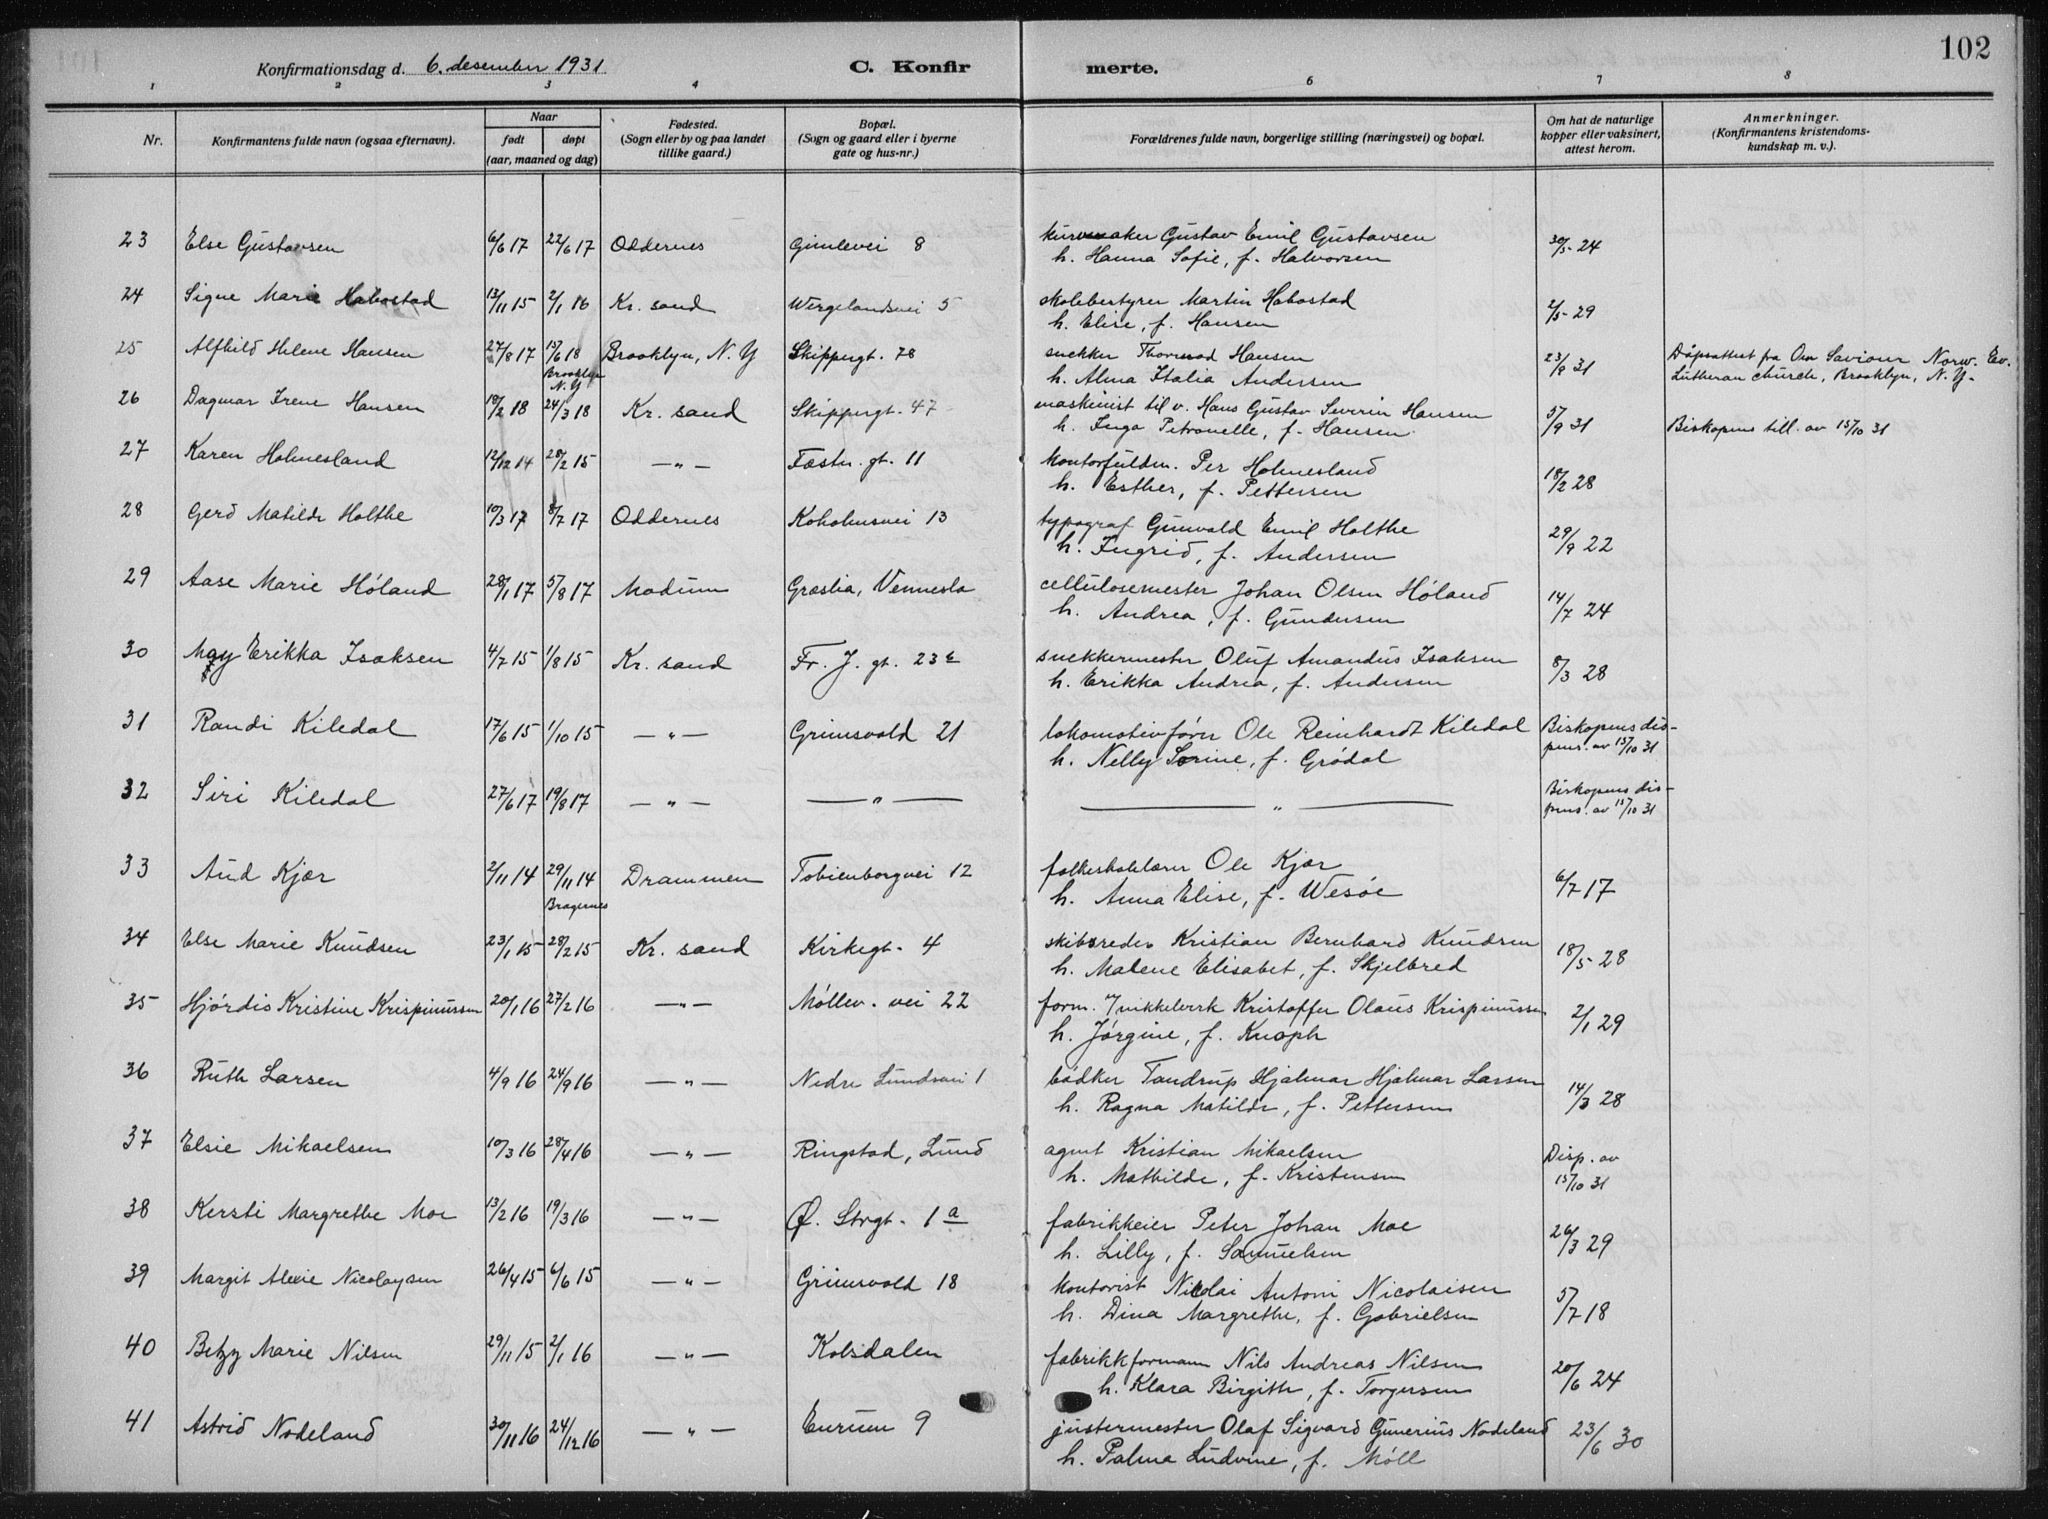 102
Konfirmationsdag d. 6. desember 1931
C. Konfirmerte.
1 2 3 4 5 6 7 8
Nr. Konfirmantens fulde navn (ogsaa efternavn). Naar født døpt (aar, maaned og dag) Fødested. (Sogn eller by og paa landet tillike gaard.) Bopæl. (Sogn og gaard eller i byerne gate og hus-nr.) Forældrenes fulde navn, borgerlige stilling (næringsvei) og bopæl. Om hat de naturlige kopper eller vaksinert, attest herom. Anmerkninger. (Konfirmantens kristendomskundskap m. v.).
23 Else Gustavsen 6/6 17 22/6 17 Oddernes Gimlevei 8 kurvmaker Gustav Emil Gustavsen 30/5-24
h. Hanna Sofie, f. Halvorsen
24 Signe Marie Habostad 13/11 15 2/1 16 Kr. sand Wergelandsvei 5 skolebestyrer Martin Habostad 2/5-29
h. Elise, f. Hansen
25 Alfhild Helene Hansen 27/8 17 15/6 18 Brooklyn N.Y Brooklyn, N.Y Skippergt. 78 snekker Thormod Hansen 23/9 31 Dåpsattest fra Our Saviour Norw. Ev.
h. Alma Italia Andersen Lutheran church, Brooklyn, N.Y-
26 Dagmar Irene Hansen 18/2 18 24/3 18 Kr. sand Skippergt. 47 maskinist til v. Hans Gustav Severin Hansen 5/9 31 Biskopens till. av 15/10 31
h. Inga Petronelle, f. Hansen
27 Karen Holmesland 12/12 14 28/2 15 — " — Fæstn. gt. 11 kontorfuldm. Per Holmesland 18/2 28
h. Esther, f. Pettersen
28 Gerd Matilde Holthe 10/3 17 8/7 17 Oddernes Koholmsvei 13 typograf Gunvald Emil Holthe 29/9 22
h. Ingrid, f. Andersen
29 Aase Marie Høland 28/1 17 5/8 17 Modum Græslia, Vennesla cellulosemester Johan Olsen Høland 14/7 24
h. Andrea, f. Gundersen
30 May Erikka Isaksen 4/7 15 1/8 15 Kr. sand Fr. J. gt. 23 snekkermester Oluf Amandus Isaksen 8/3 28
h. Erikka Andrea, f. Andersen
31 Randi Kiledal 17/6 15 1/10 15 — " — Grimsvold 21 lokomotivfører Ole Reinhardt Kiledal Biskopens dis-
h. Nelly Sorine, f. Grødal pens. av 15/10 31
32 Siri Kiledal 27/6 17 19/8 17 — " — — " — — " — Biskopens dis-
pens. av 15/10 31
33 Aud Kjær 2/11 14 29/11 14 Bragernes Drammen Tobienborgvei 12 folkeskolelærer Ole Kjær 6/7 17
h. Anna Elise, f. Wesøe
34 Else Marie Knudsen 23/1 15 28/2 15 Kr. sand Kirkegt. 4 skibsreder Kristian Bernhard Knudsen 18/5 28
h. Malene Elisabet, f. Skjelbred
35 Hjørdis Kristine Krispinussen 20/1 16 27/2 16 — " — Møllev. vei 22 form. v/nikkelverk Kristoffer Olaus Krispinussen 2/1 29
h. Jørgine, f. Knoph
36 Ruth Larsen 4/9 16 24/9 16 — " — Nedre Lundsvei 1 bødker Tandrup Hjalmar Hjalmar Larsen 14/3 28
h. Ragna Matilde, f. Pettersen
37 Elsie Mikaelsen 10/3 16 28/4 16 — " — Ringstad, Lund agent Kristian Mikaelsen Disp. av
h. Mathilde, f. Kristensen 15/10 31
38 Kersti Margrethe Moe 13/2 16 19/3 16 — " — Ø. Strgt. 1a fabrikkeier Peter Johan Moe 26/3 29
h. Lilly, f. Samuelsen
39 Margit Alexie Nicolaysen 26/4 15 6/6 15 — " — Grimsvold 18 kontorist Nikolai Antoni Nicolaisen 5/7 18
h. Dina Margrethe, f. Gabrielsen
40 Betzy Marie Nilsen 29/11 15 2/1 16 — " — Kolsdalen fabrikkformann Nils Andreas Nilsen 20/6 24
h. Klara Birgitte, f. Torgersen
41 Astrid Nodeland 30/11 16 24/12 16 — " — Enrum 9 justermester Olaf Sigvard Gunerius Nodeland 23/6 30
h. Palma Ludvine, f. Møll